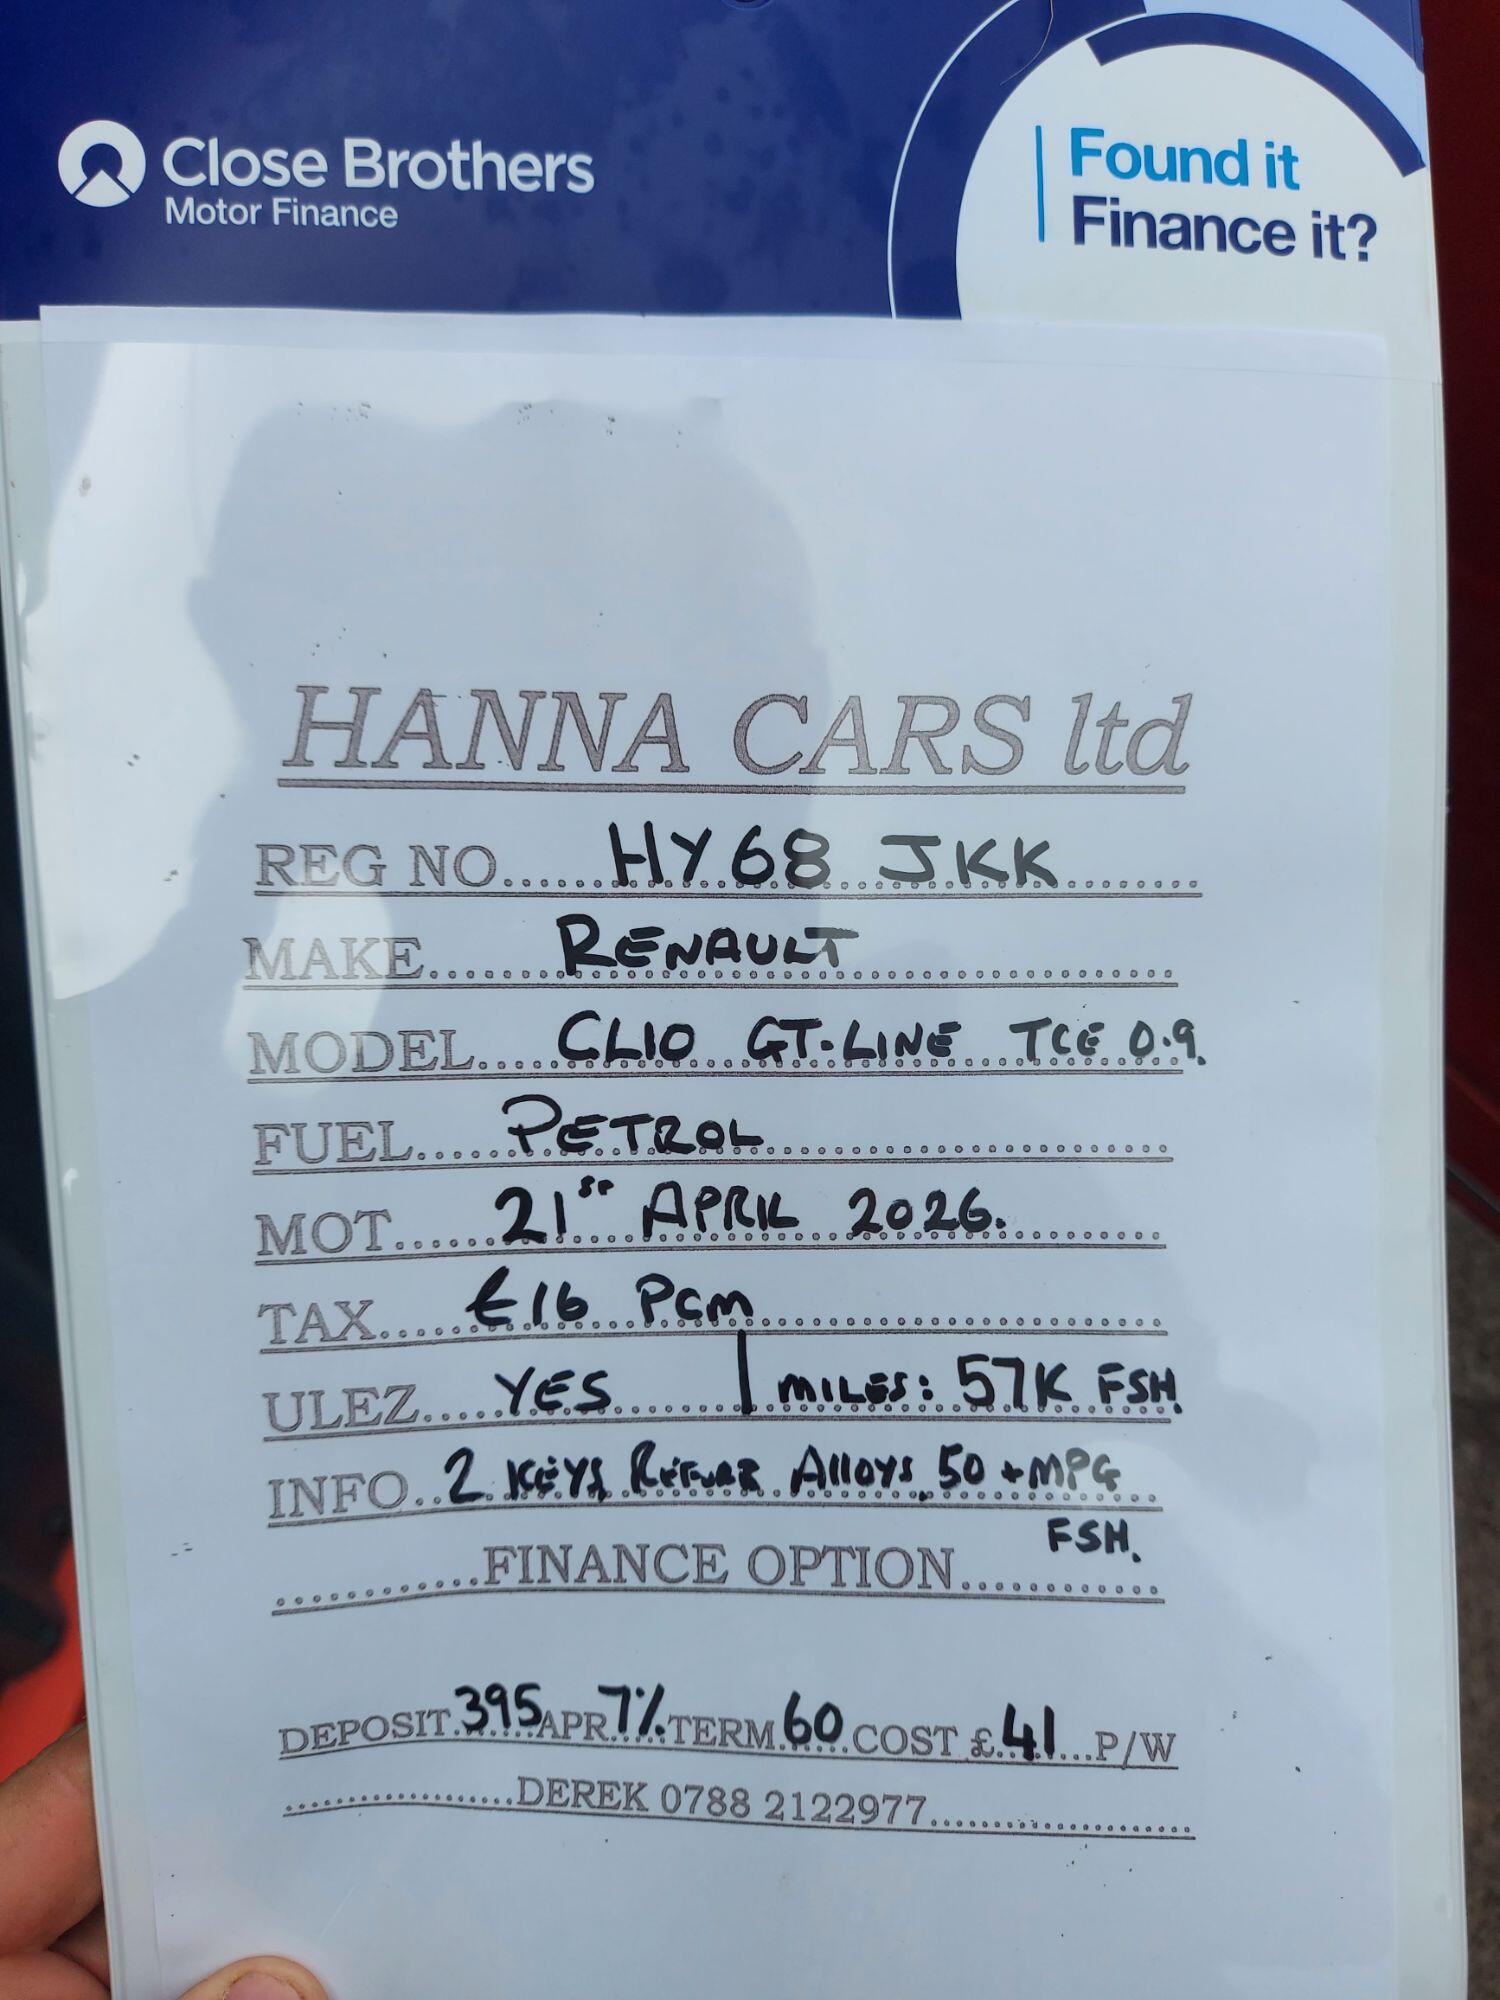 Close Brothers
Motor Finance
Found it
Finance it?
HANNA CARS ltd
REG NO......HY68 JKK.......
MAKE......RENAULT
MODEL....CLIO GT-LINE TCE 0.9.
FUEL......PETROL
MOT......21ST APRIL 2026.
TAX......£16 PCM
ULEZ.....YES | MILES: 57K FSH.
INFO..2 KEYS, REFURB ALLOYS, 50+MPG
FSH.
..........FINANCE OPTION............
DEPOSIT.395 APR 7% TERM.60 COST £.41...P/W
..................DEREK 0788 2122977....................